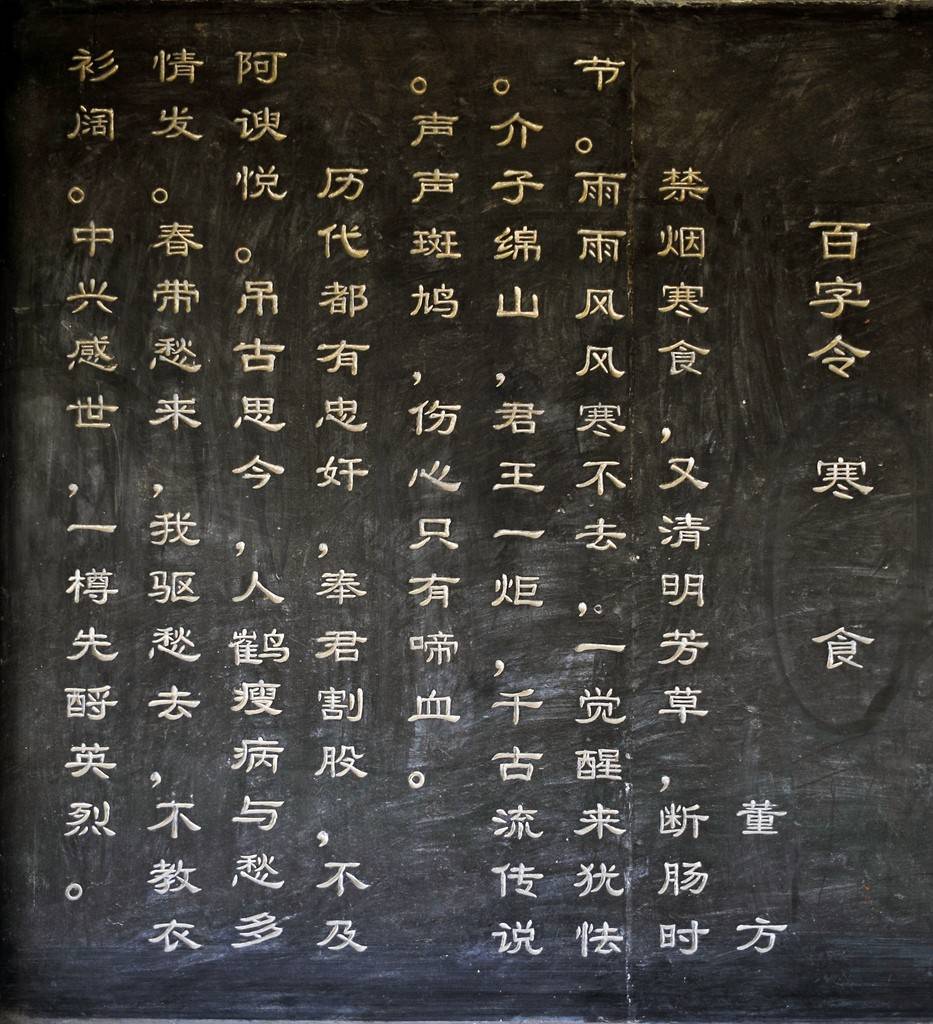 百字令 寒食
董方
禁烟寒食,又清明芳草,断肠时
节。雨雨风风寒不去,。一觉醒来犹怯
。介子绵山,君王一炬,千古流传说
。声声斑鸠,伤心只有啼血。
历代都有忠奸,奉君割股,不及
阿谀悦。吊古思今,人鹤瘦病与愁多
情发。春带愁来,我驱愁去,不教衣
衫阔。中兴感世,一樽先酹英烈。